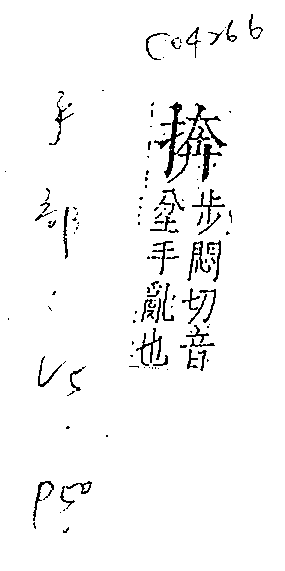 C04266
捹
步悶切音
坌手亂也
手部：V5.P50.